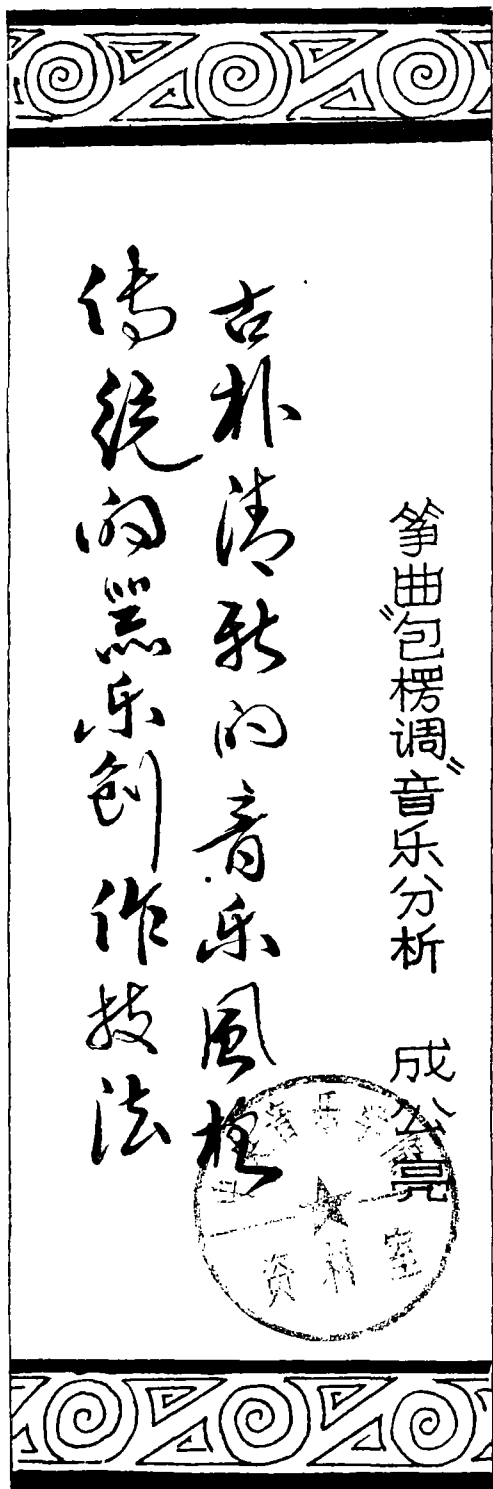 筝曲“包楞调”音乐分析 成公亮
古朴清新的音乐風格
传统的器乐创作技法
资料室